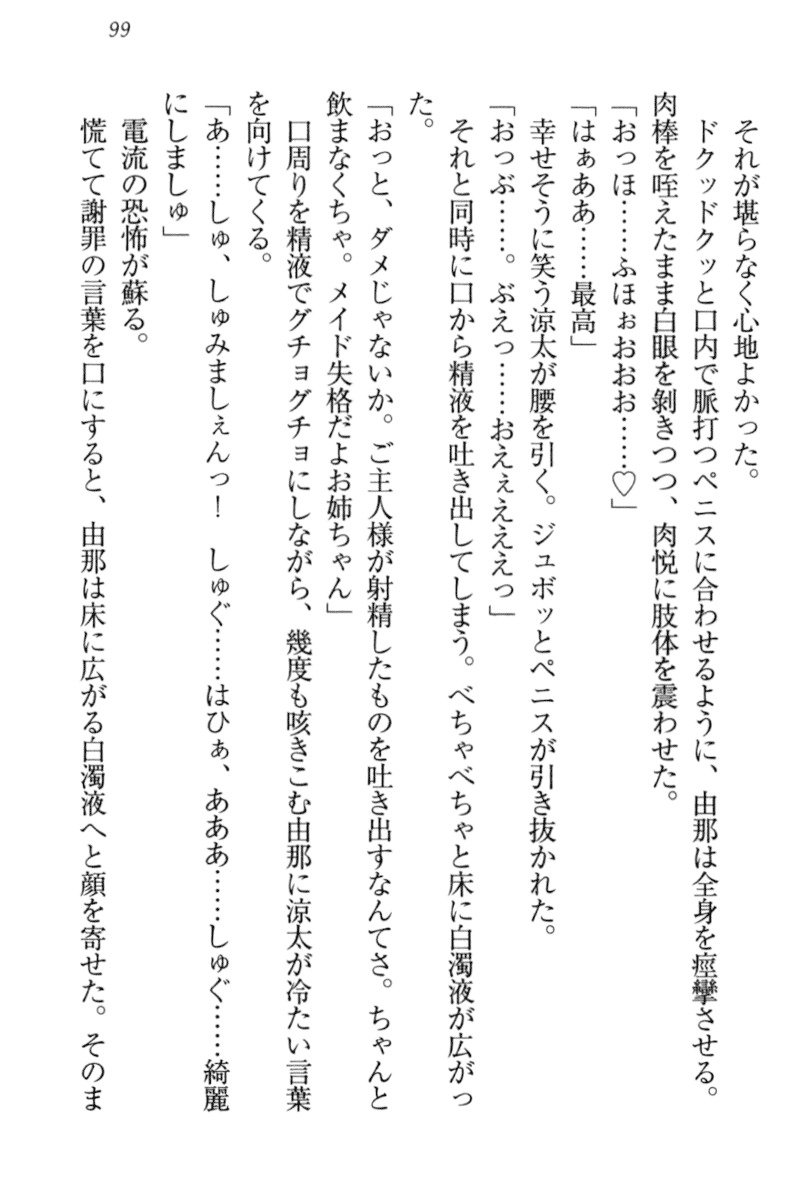 99
それが堪らなく心地よかった。
ドクッドクッと口内で脈打つペニスに合わせるように、由那は全身を痙攣させる。
肉棒を咥えたまま白眼を剝きつつ、肉悦に肢体を震わせた。
「おっほ……ふほぉおおお……♡」
「はぁああ……最高」
幸せそうに笑う涼太が腰を引く。ジュボッとペニスが引き抜かれた。
「おっぶ……。ぶえっ……おえぇえええっ」
それと同時に口から精液を吐き出してしまう。べちゃべちゃと床に白濁液が広がっ
た。
「おっと、ダメじゃないか。ご主人様が射精したものを吐き出すなんてさ。ちゃんと
飲まなくちゃ。メイド失格だよお姉ちゃん」
口周りを精液でグチョグチョにしながら、幾度も咳きこむ由那に涼太が冷たい言葉
を向けてくる。
「あ……しゅ、しゅみましぇんっ！　しゅぐ……はひぁ、あああ……しゅぐ……綺麗
にしましゅ」
電流の恐怖が蘇る。
慌てて謝罪の言葉を口にすると、由那は床に広がる白濁液へと顔を寄せた。そのま